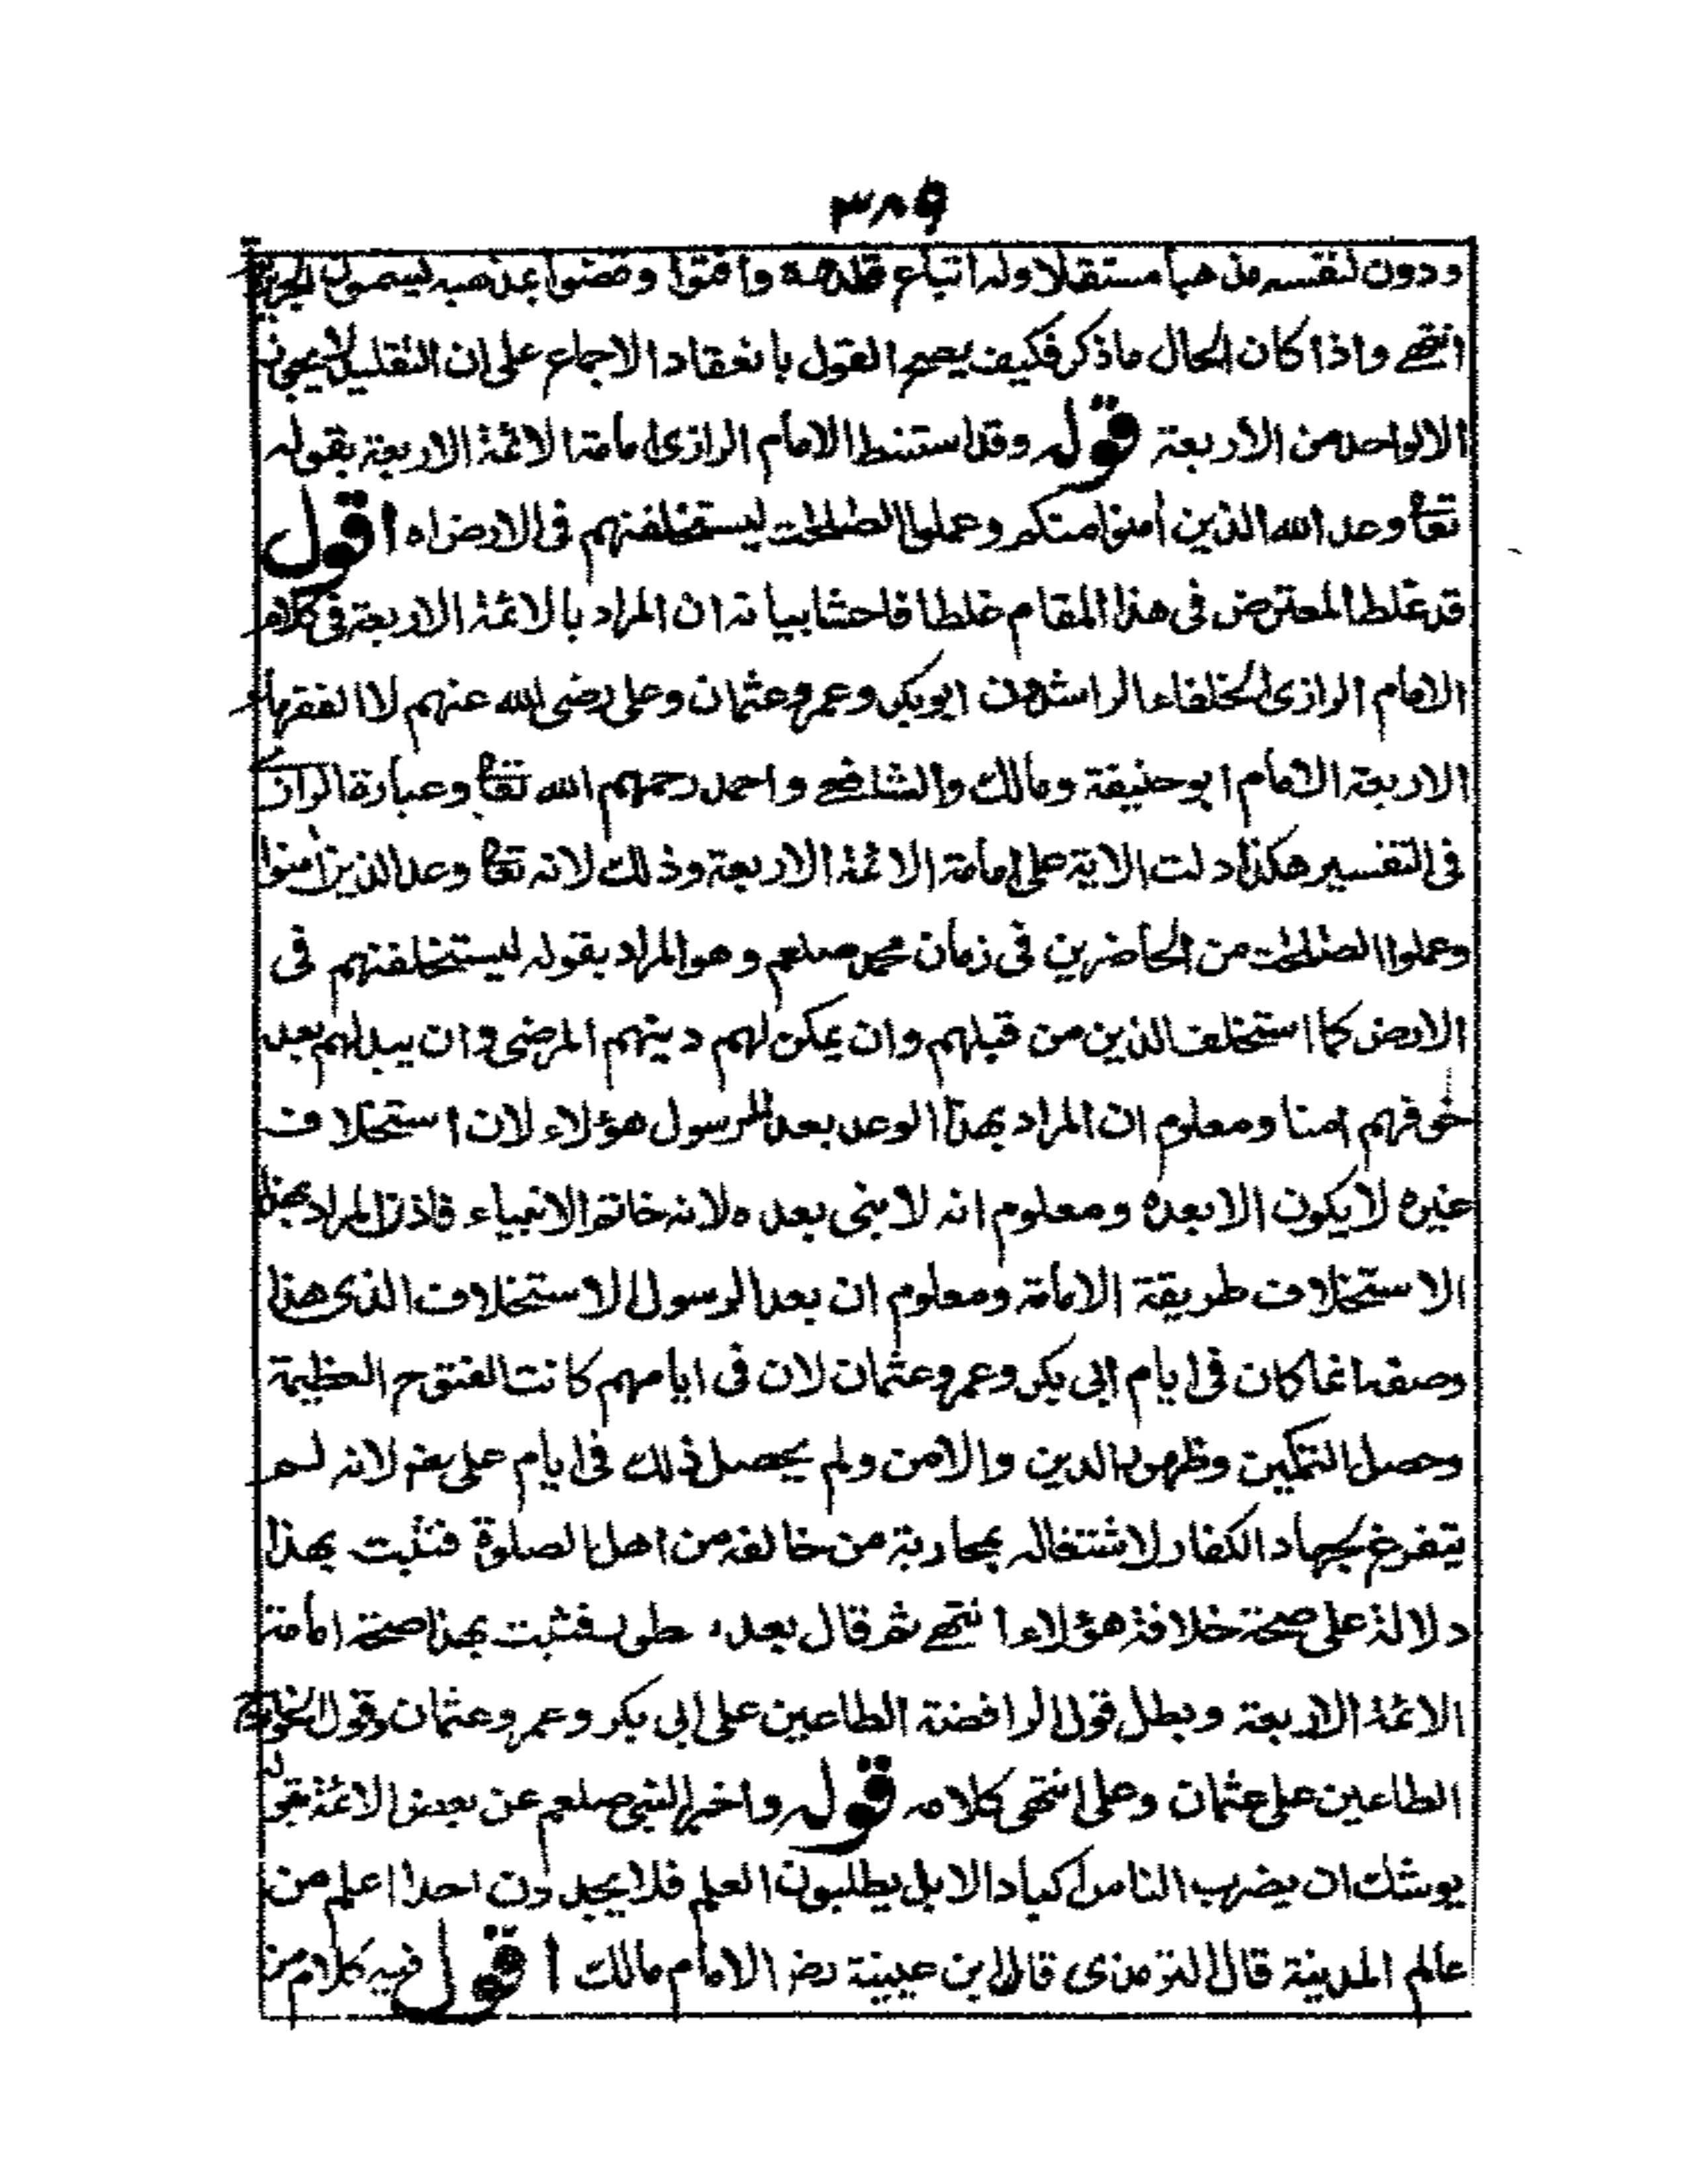 ٣٨٩
ودون لنفسه مذهبا مستقلا وله اتباع قلدوه وافتوا وقضوا بمذهبه يسمون
انتهى واذا كان الحال ما ذكر فكيف يصح القول بانعقاد الاجماع على ان التقليد لا يجوز
الا لواحد من الأربعة قوله وقد استنبط الامام الرازى امامة الائمة الاربعة بقوله
تعا وعد الله الذين امنوا منكم وعملوا الصلحت ليستخلفنهم فى الارض اه اقول
قد غلط المعترض فى هذا المقام غلطا فاحشا بيانه ان المراد بالائمة الاربعة فى كلام
الامام الرازى الخلفاء الراشدون ابوبكر وعمر وعثمان وعلى رضى الله عنهم لا الفقهاء
الاربعة الامام ابوحنيفة ومالك والشافعى واحمد رحمهم الله تعا وعبارة الرازى
فى التفسير هكذا دلت الاية على امامة الائمة الاربعة وذلك لانه تعا وعد الذين امنوا
وعملوا الصلحت من الحاضرين فى زمان محمد صلعم وهو المراد بقوله ليستخلفنهم فى
الارض كما استخلف الذين من قبلهم وان يمكن لهم دينهم المرضى وان يبدلهم بعد
خوفهم امنا ومعلوم ان المراد بهذا الوعد بعد الرسول هؤلاء لان استخلاف
غيره لا يكون الا بعده ومعلوم انه لا نبى بعده لانه خاتم الانبياء فاذن المراد بهذا
الاستخلاف طريقة الامامة ومعلوم ان بعد الرسول الاستخلاف الذى هذا
وصفه انما كان فى ايام ابى بكر وعمر وعثمان لان فى ايامهم كانت الفتوح العظيمة
وحصل التمكين وظهور الدين والامن ولم يحصل ذلك فى ايام على رض لانه لم
يتفرغ لجهاد الكفار لاشتغاله بمحاربة من خالفه من اهل الصلوة فثبت بهذا
دلالة على صحة خلافة هؤلاء انتهى ثم قال بعد، سطور فثبت بهذا صحة امامة
الائمة الاربعة وبطل قول الرافضة الطاعين على ابى بكر وعمر وعثمان وقول الخوارج
الطاعين على عثمان وعلى انتهى كلامه قوله واخبر النبى صلعم عن بعض الائمة بقوله
يوشك ان يضرب الناس اكباد الابل يطلبون العلم فلا يجدون احدا اعلم من
عالم المدينة قال الترمذى قال ابن عيينة رض الامام مالك اقول فيه كلام من